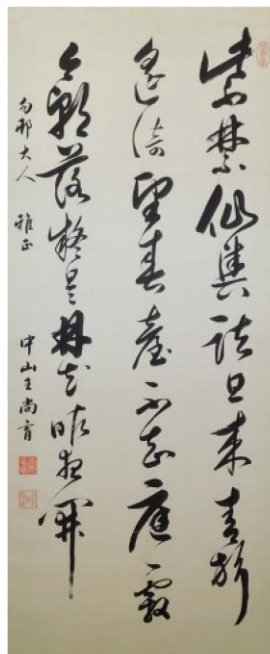 紫禁仙輿詰旦來青旂
遙倚望春臺不知庭霰
今朝落疑是林花昨夜開
邨大人 雅正
中山王尚育